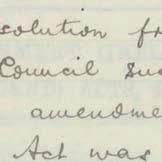 solution fr
Council suc
amendme
Act was